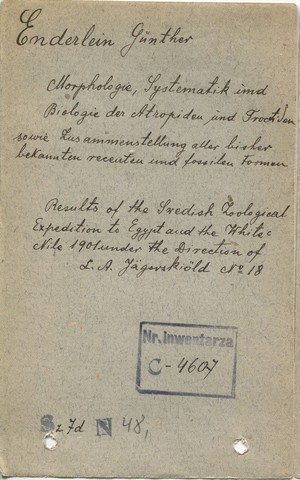 Enderlein Günther
Morphologie, Systematik und
Biologie der Atropiden und Troctiden
sowie Zusammenstellung aller bisher
bekannten recenten und fossilen Formen
Results of the Swedish Zoological
Expedition to Egypt and the White
Nile 1901 under the Direction of
L. A. Jägerskiöld No 18
Nr. inwentarza
C-4607
S z 7d N 48,